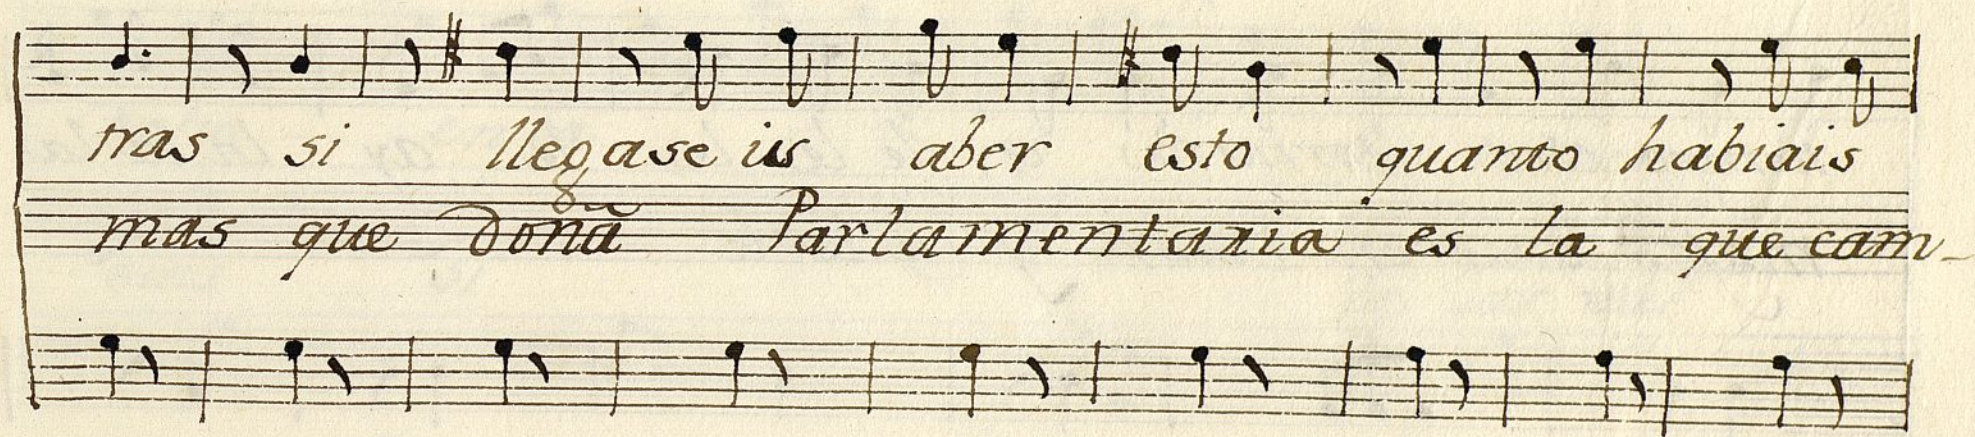 tras si llegase is aber esto quanto habiais
mas que doñā Parlamentaria es la que cam-